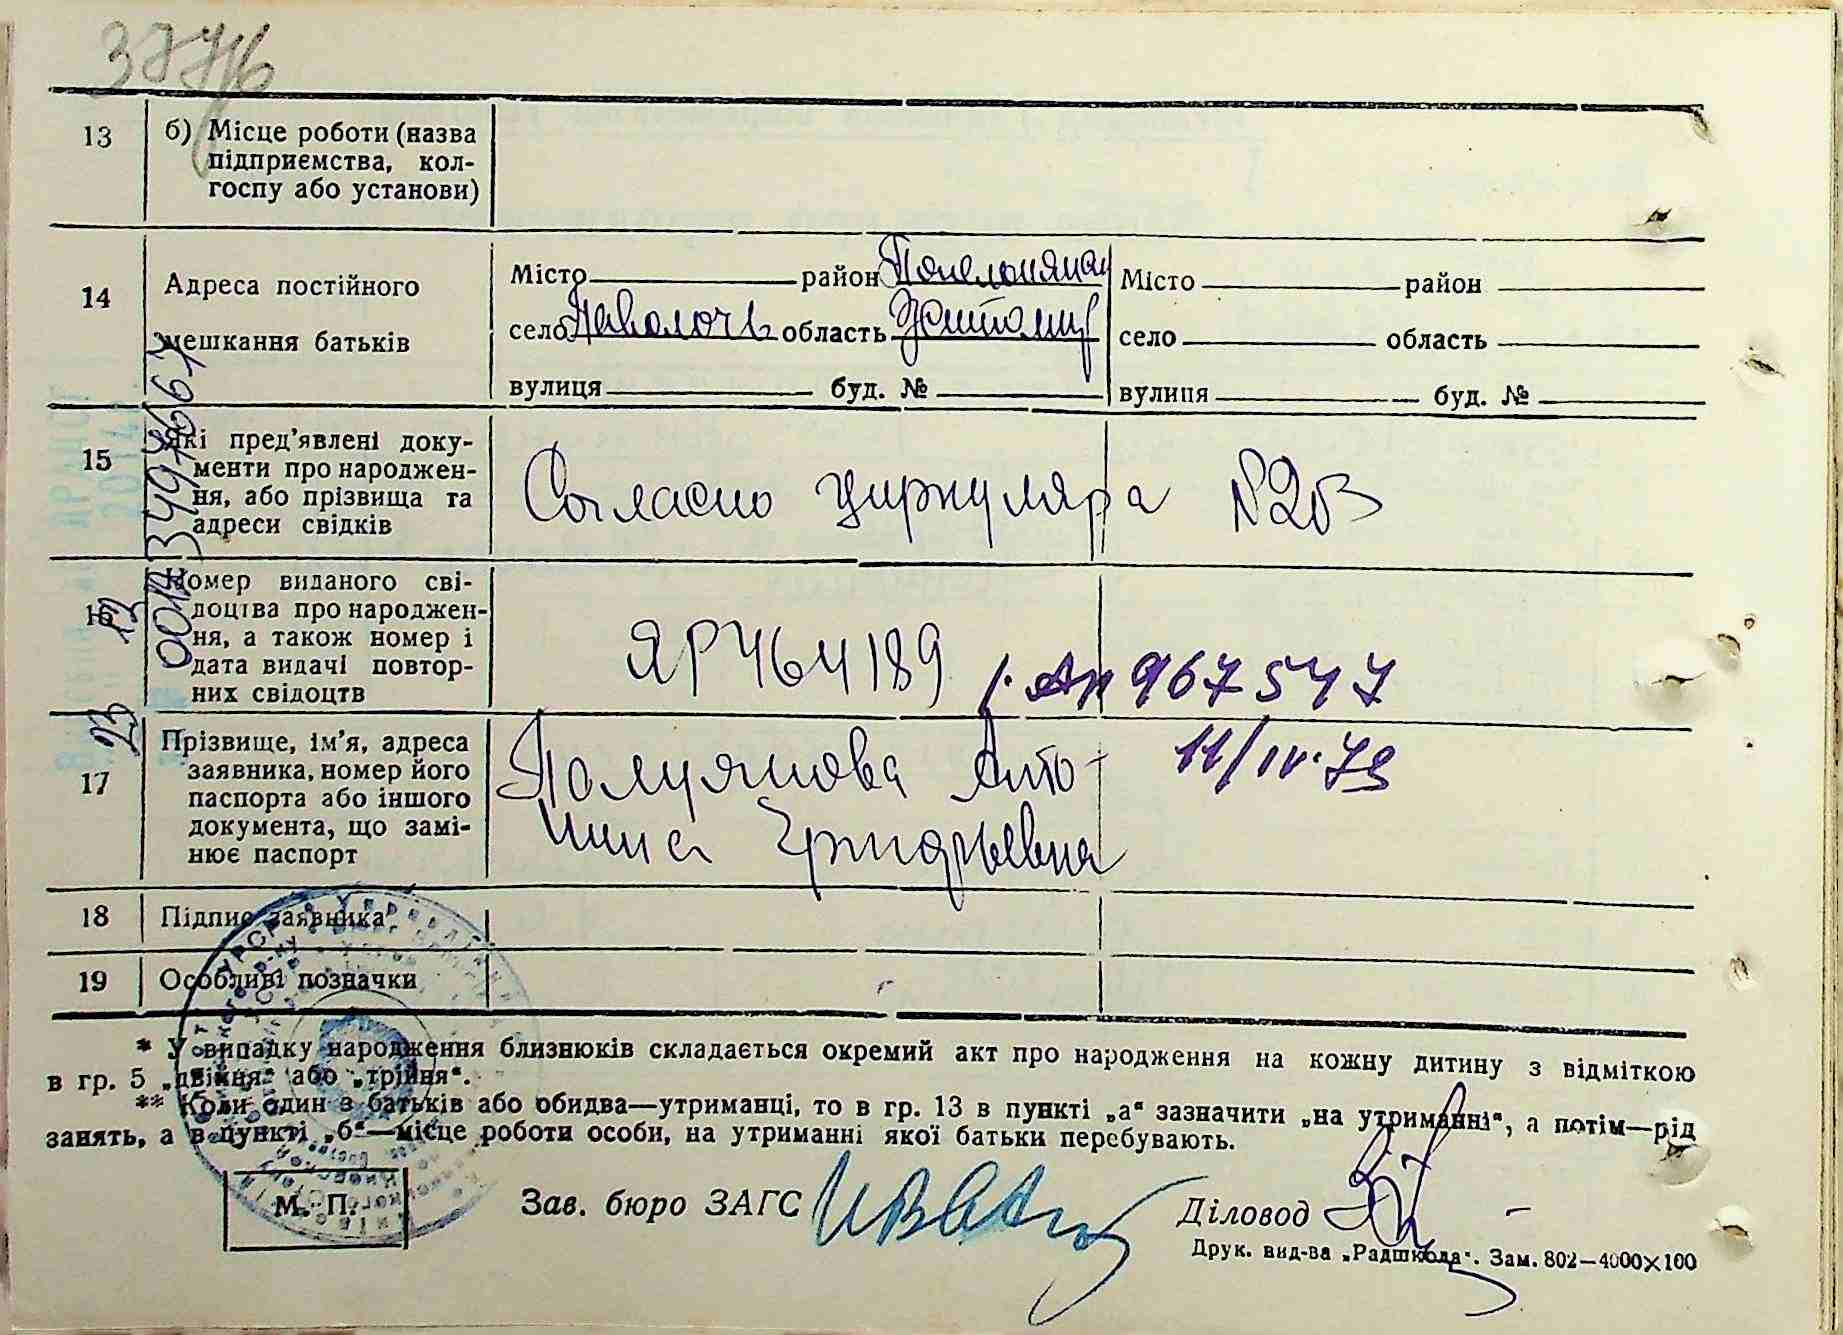 13
б) Місце роботи (назва
підприємства, кол-
госпу або установи)
14
Адреса постійного
мешкання батьків
Місто район
село Паволочь область Житомир
вулиця буд. №
Місто район
село область
вулиця буд. №
15
Які пред'явлені доку-
менти про народжен-
ня, або прізвища та
адреси свідків
Согласно циркуляра
16
Номер виданого сві-
доцтва про народжен-
ня, а також номер і
дата видачі повтор-
них свідоцтв
ЯР 464189
967547
11/IV.79
17
Прізвище, ім'я, адреса
заявника, номер його
паспорта або іншого
документа, що замі-
нює паспорт
Полуянова Анто-
нина Григорьевна
18
Підпис заявника
19
Особливі позначки
* У випадку народження близнюків складається окремий акт про народження на кожну дитину з відміткою
в гр. 5 „двійня" або „трійня".
** Коли один з батьків або обидва—утриманці, то в гр. 13 в пункті „а" зазначити „на утриманні", а потім—рід
занять, а в пункті „б"—місце роботи особи, на утриманні якої батьки перебувають.
М. П.
Зав. бюро ЗАГС
Діловод
Друк. вид-ва „Радшкола". Зам. 802—4000×100